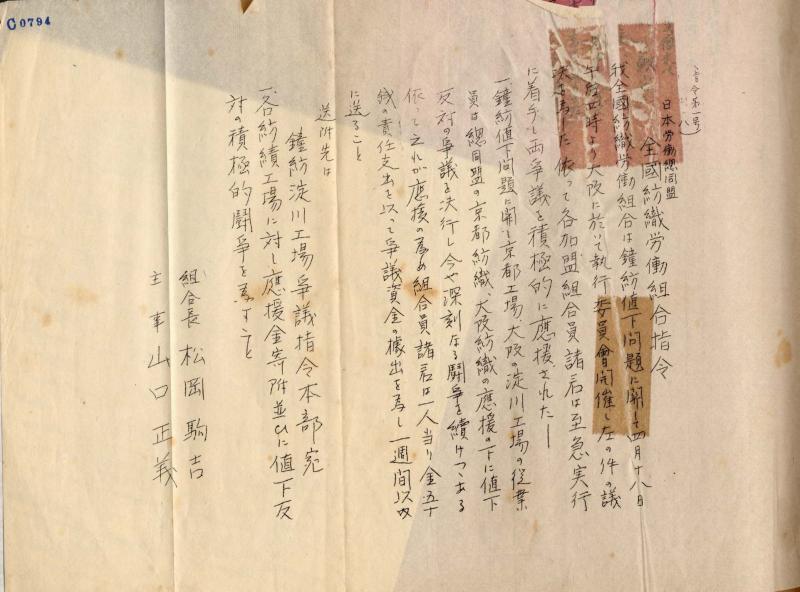 C0794
（指令第一号）
八
日本労働總同盟
全國紡織労働組合指令
我全國紡織労働組合は鐘紡値下問題に関し四月十八日
午后四時より大阪に於いて執行委員會開催し左の件の議
決を為した 依って各加盟組合員諸君は至急実行
に着手し両爭議を積極的に應援されたし
一、鐘紡値下問題に関し京都工場、大阪の淀川工場の従業
員は總同盟の京都紡織、大阪紡織の應援の下に値下
反対の爭議を决行し今や深刻なる鬪爭を續けつゝある
依って之れが應援の為め組合員諸君は一人当り金五十
銭の責任支出を以って爭議資金の據出を為し一週間以内
に送ること
送附先は
鐘紡淀川工場爭議指令本部宛
一、各紡績工場に対し應援金寄附並ひに値下反
対の積極的鬪爭を為すこと
組合長 松岡駒吉
主事 山口正義